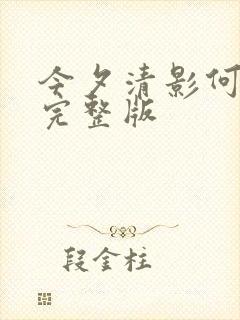 今夕清影何
完整版
段金柱